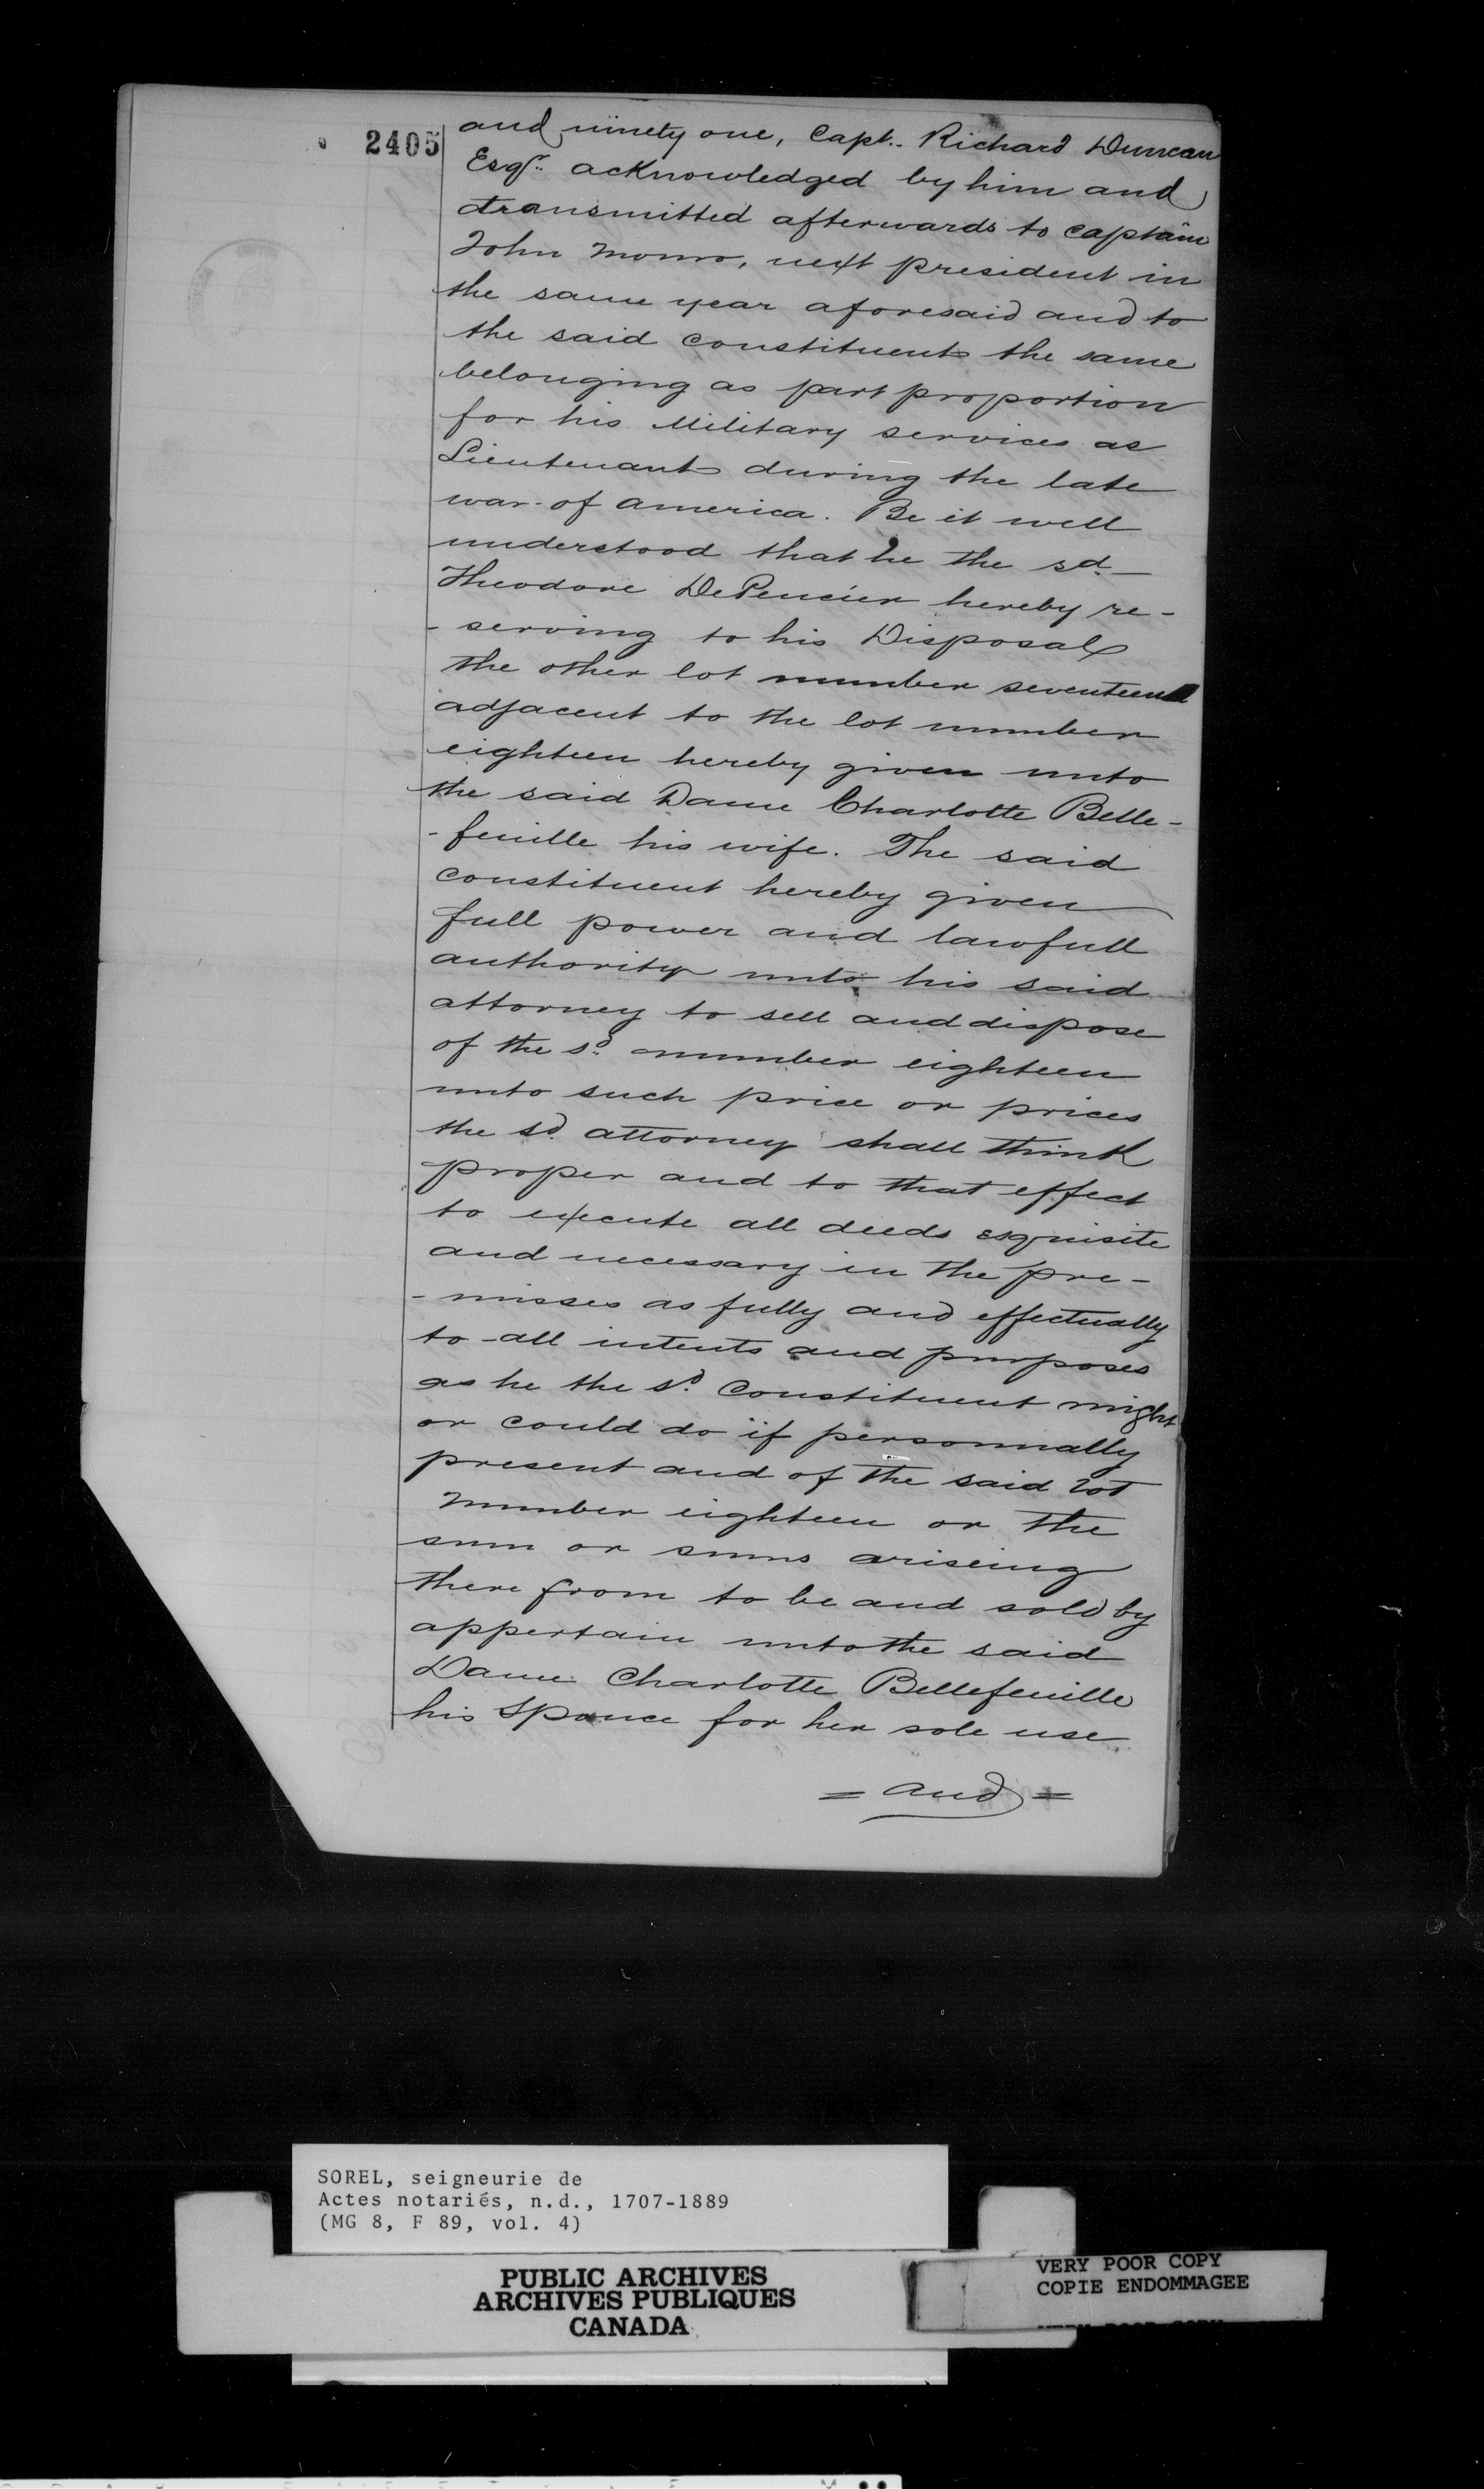 2405
and ninety one, Capt. Richard Duncan
Esqr. acknowledged by him and
transmitted afterwards to captain
John Monro, next president in
the same year aforesaid and to
the said constituent the same
belonging as part proportion
for his Military services as
Lieutenant during the late
war of america. Be it well
understood that he the sd.
Theodore DePencier hereby re-
- serving to his Disposal
the other lot number seventeen
adjacent to the lot number
eighteen hereby given unto
the said Dame Charlotte Belle-
- feuille his wife. The said
constituent hereby given
full power and lawfull
authority unto his said
attorney to sell and dispose
of the sd. number eighteen
unto such price or prices
the sd. attorney shall think
proper and to that effect
to execute all deeds esquisite
and necessary in the pre-
- misses as fully and effectually
to all intents and purposes
as he the sd. Constituent might
or could do if personnally
present and of the said lot
number eighteen or the
sum or sums ariseing
there from to be and sold by
appertain unto the said
Dame Charlotte Bellefeuille
his Spouce for her sole use
= and =
SOREL, seigneurie de
Actes notariés, n.d., 1707-1889
(MG 8, F 89, vol. 4)
PUBLIC ARCHIVES
ARCHIVES PUBLIQUES
CANADA
VERY POOR COPY
COPIE ENDOMMAGEE